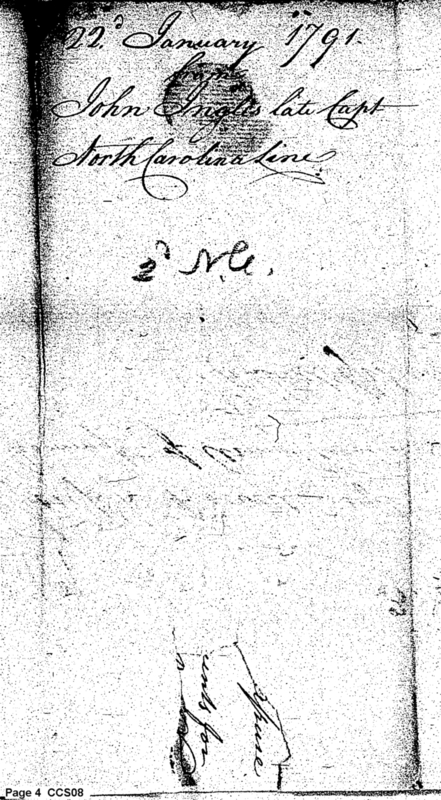 22d January 1791.
from
John Inglis late Capt
North Carolina Line
2d N.C.
Page 4 CCS08